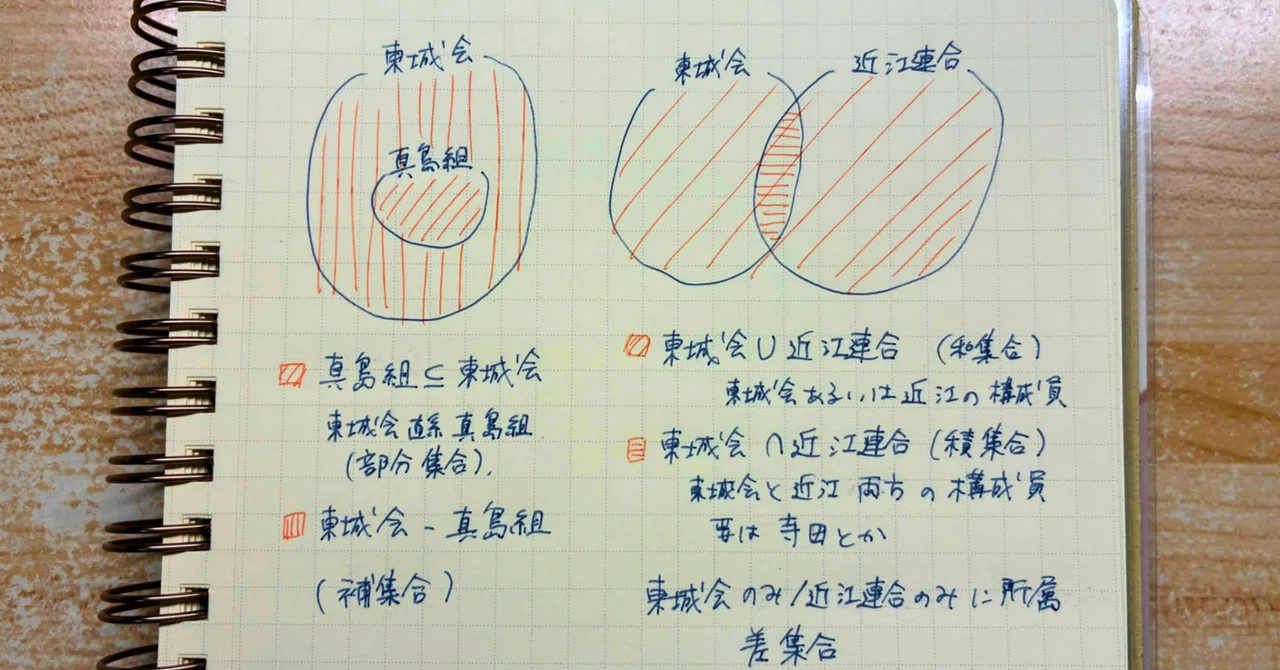 東城会
真島組
真島組⊆東城会
東城会直系真島組
(部分集合).
東城会-真島組
(補集合)
東城会
近江連合
東城会∪近江連合 (和集合)
東城会あるいは近江の構成員
東城会∩近江連合(積集合)
東城会と近江両方の構成員
要は寺田とか
東城会のみ/近江連合のみに所属
差集合